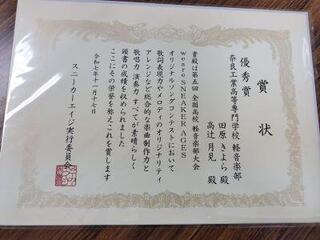 賞状
優秀賞
奈良工業高等専門学校 軽音楽部
田原 きよら 殿
高辻 月見 殿
貴殿は第五回 全国高校 軽音楽部大会
we are SNEAKER AGES
オリジナルソングコンテストにおいて
歌詞表現力やメロディのオリジナリティ
アレンジなど総合的な楽曲制作力と
歌唱力 演奏力 すべてが素晴らしく
頭書の成績を収められました
ここにその栄誉を称えこれを賞します
令和七年十一月十七日
スニーカーエイジ実行委員会